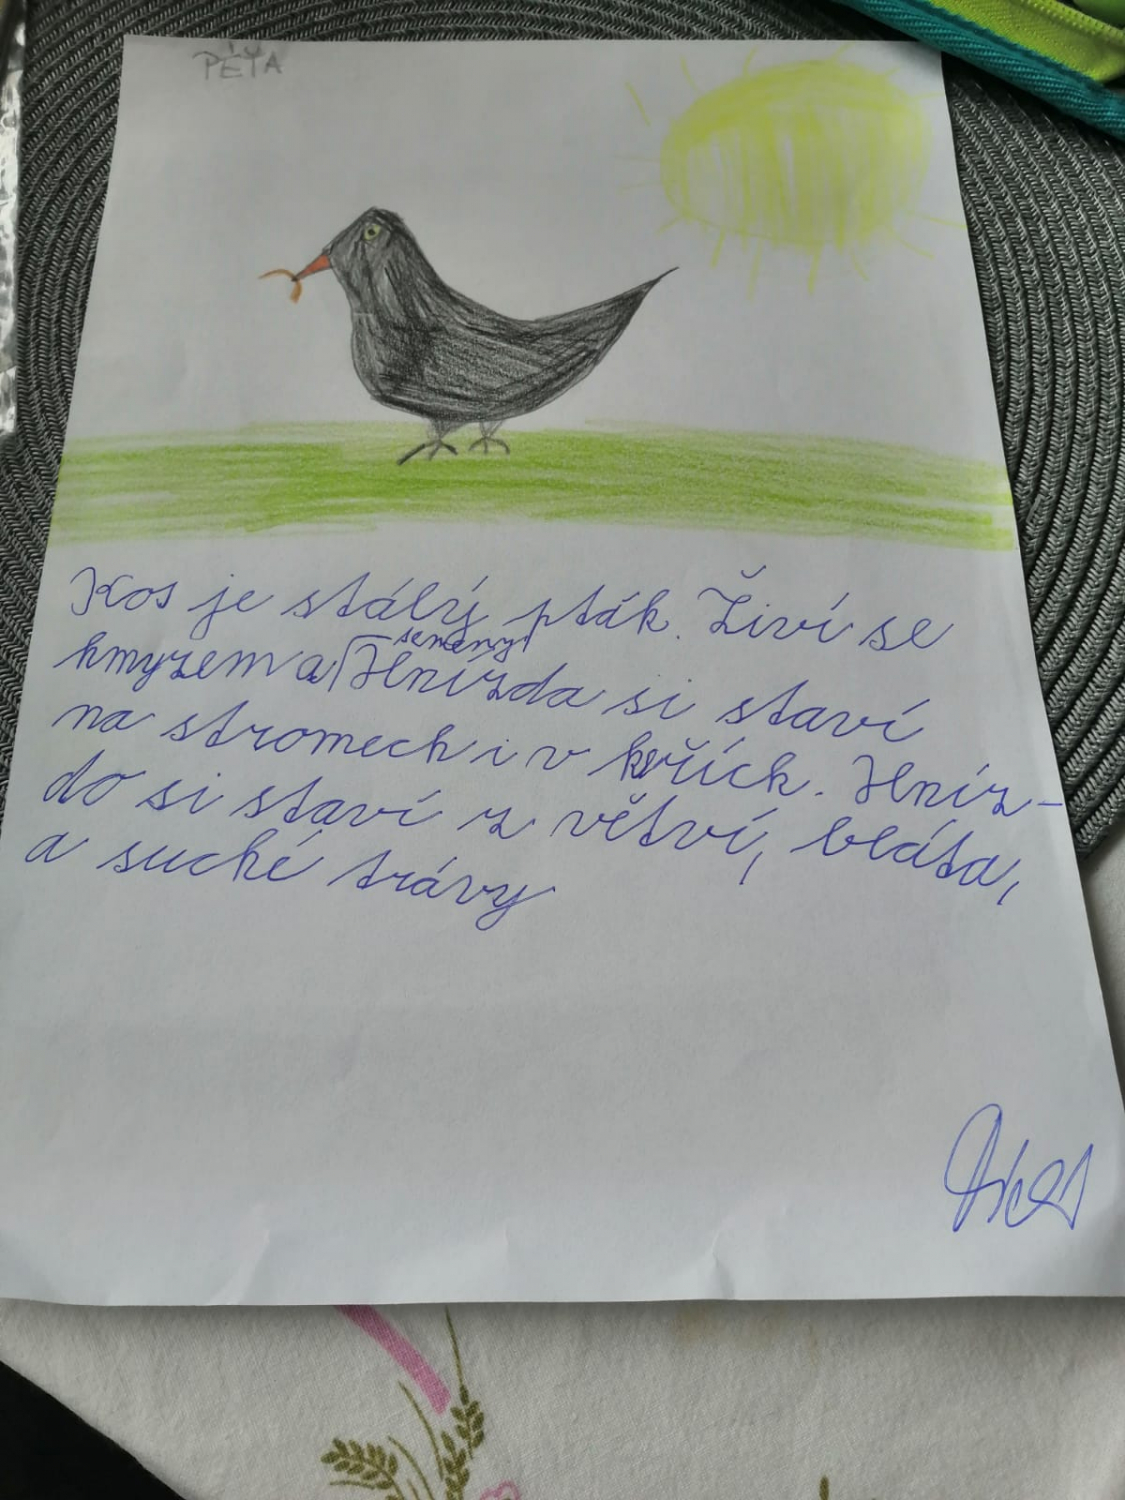 PÉŤA
Kos je stálý pták. Živí se
semeny
hmyzem a Hnízda si staví
na stromech i v keřích. Hníz-
do si staví z větví, bláta,
a suché trávy